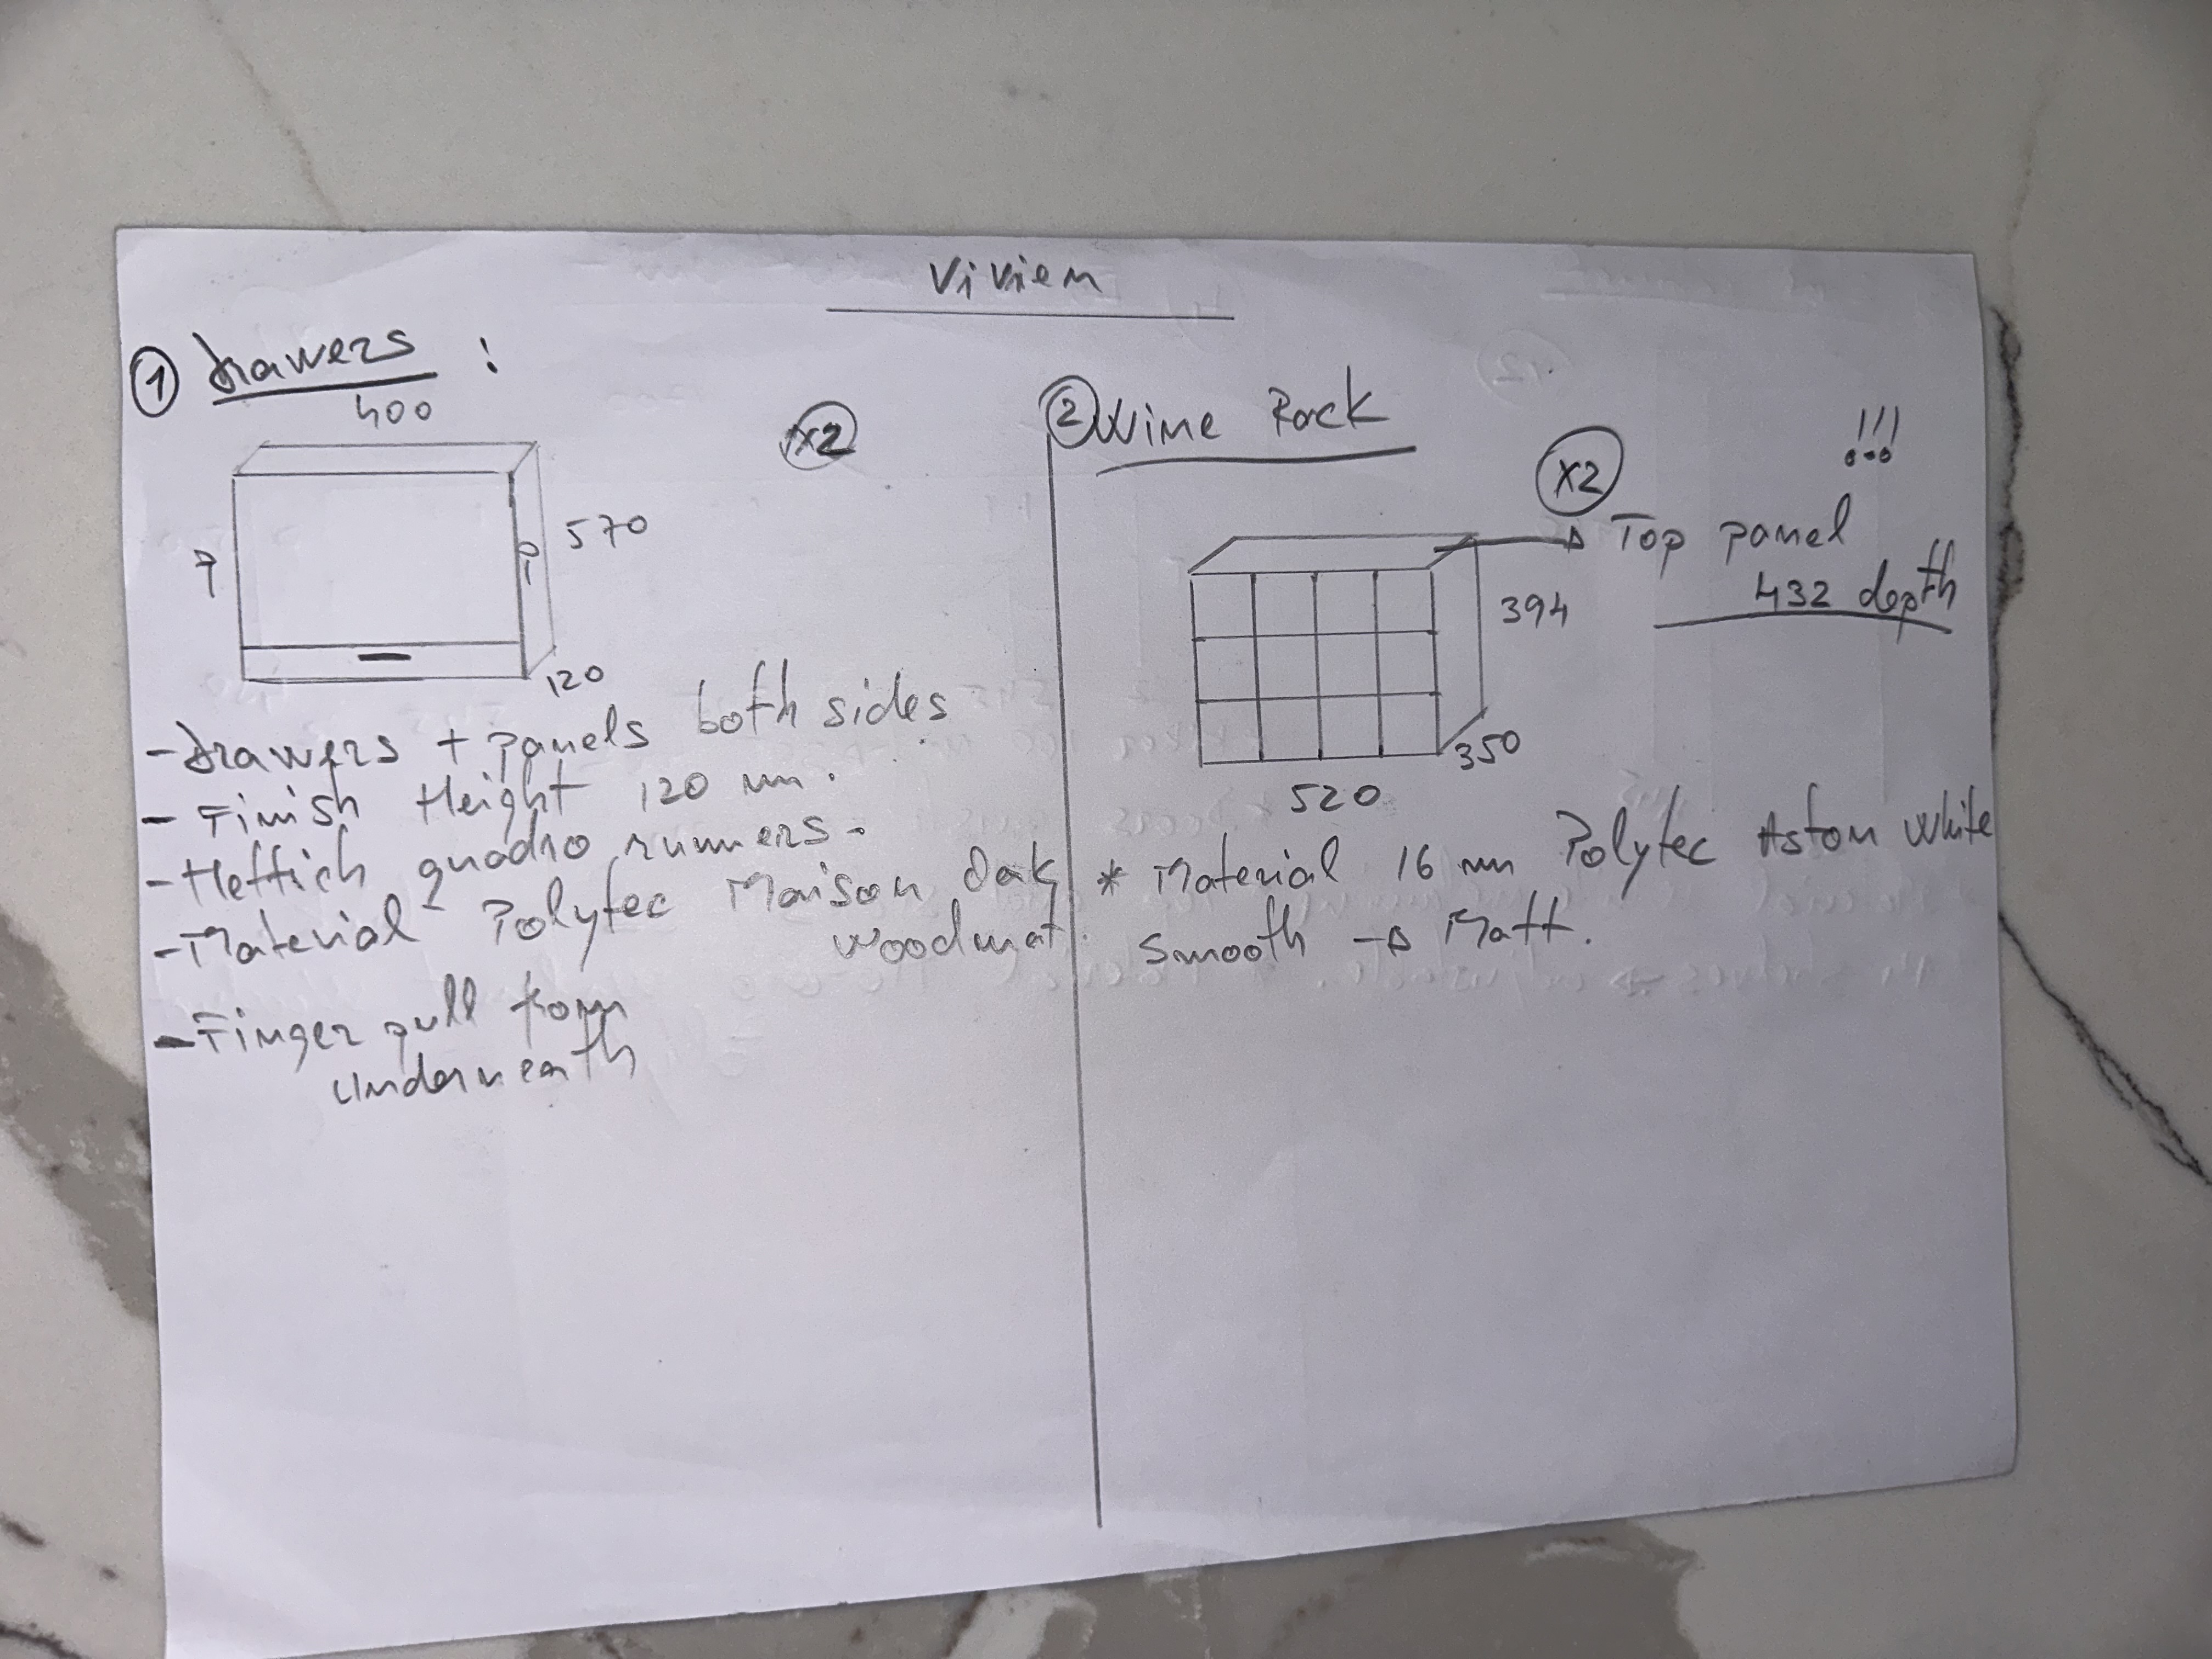 Vivien
① Drawers :
400
x2
P
P
570
120
- Drawers + panels both sides
- Finish Height 120 mm.
- Hettich quadro runners.
- Material Polytec Maison Oak
woodmat.
- Finger pull from
underneath
② Wine Rack
x2
!!!
→ Top panel
432 depth
394
350
520
* Material 16 mm Polytec Aston White
Smooth → Matt.